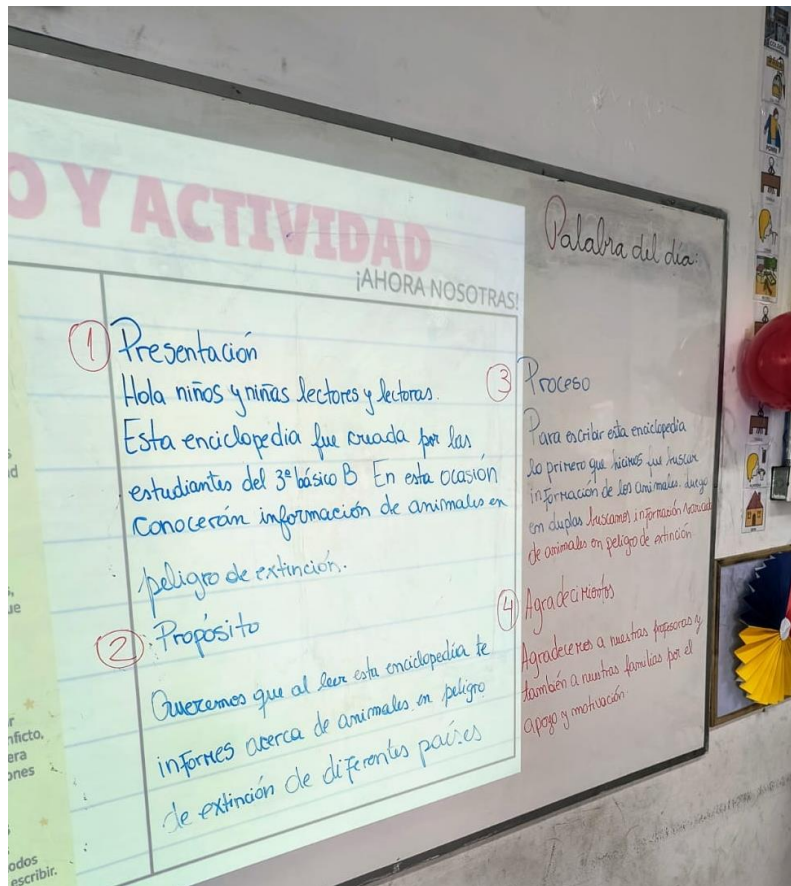 O Y ACTIVIDAD
¡AHORA NOSOTRAS!
① Presentación
Hola niños y niñas lectores y lectoras.
Esta enciclopedia fue creada por las
estudiantes del 3º básico B En esta ocasión
conocerán información de animales en
peligro de extinción.
② Propósito
Queremos que al leer esta enciclopedia te
informes acerca de animales en peligro
de extinción de diferentes países
Palabra del día:
③ Proceso
Para escribir esta enciclopedia
lo primero que hicimos fue buscar
información de los animales. luego
en duplas buscamos información
de animales en peligro de extinción
④ Agradecimientos
Agradecemos a nuestras profesoras y
también a nuestras familias por el
apoyo y motivación.
d
ue
r
nficto,
era
ones
odos
escribir.